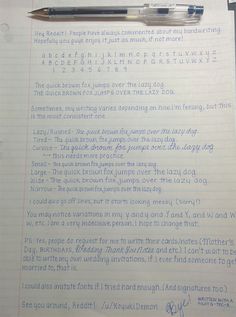 Hey Reddit! People have always commented about my handwriting.
Hopefully you guys enjoy it just as much, if not more!
a b c d e f g h i j k l m n o p q r s t u v w x y z
A B C D E F G H I J K L M N O P Q R S T U V W X Y Z
1 2 3 4 5 6 7 8 9
The quick brown fox jumps over the lazy dog.
THE QUICK BROWN FOX JUMPS OVER THE LAZY DOG.
Sometimes, my writing varies depending on how I'm feeling, but this
is the most consistent one.
Lazy/Rushed - The quick brown fox jumps over the lazy dog.
Tired - The quick brown fox jumps over the lazy dog.
Cursive - The quick brown fox jumps over the lazy dog
this needs more practice.
Small - the quick brown fox jumps over the lazy dog.
Large - The quick brown fox jumps over the lazy dog.
Wide - The quick brown fox jumps over the lazy dog.
Narrow - The quick brown fox jumps over the lazy dog.
I could also go off lines, but it starts looking messy. (Sorry!)
You may notice variations in my y and y and Y and Y, and W and W
w, etc. I am a very indecisive person. I hope to change that.
PS: Yes, people do request for me to write their cards/notes (Mother's
Day, BIRTHDAYS, Wedding Thank You Notes and etc.) I can't wait to be
able to write my own wedding invitations, if I ever find someone to get
married to, that is.
I could also imitate fonts if I tried hard enough. (And signatures too)
See you around, Reddit! /u/KoyukiDemon
Bye!
WRITTEN WITH A
PILOT G-TEC-C